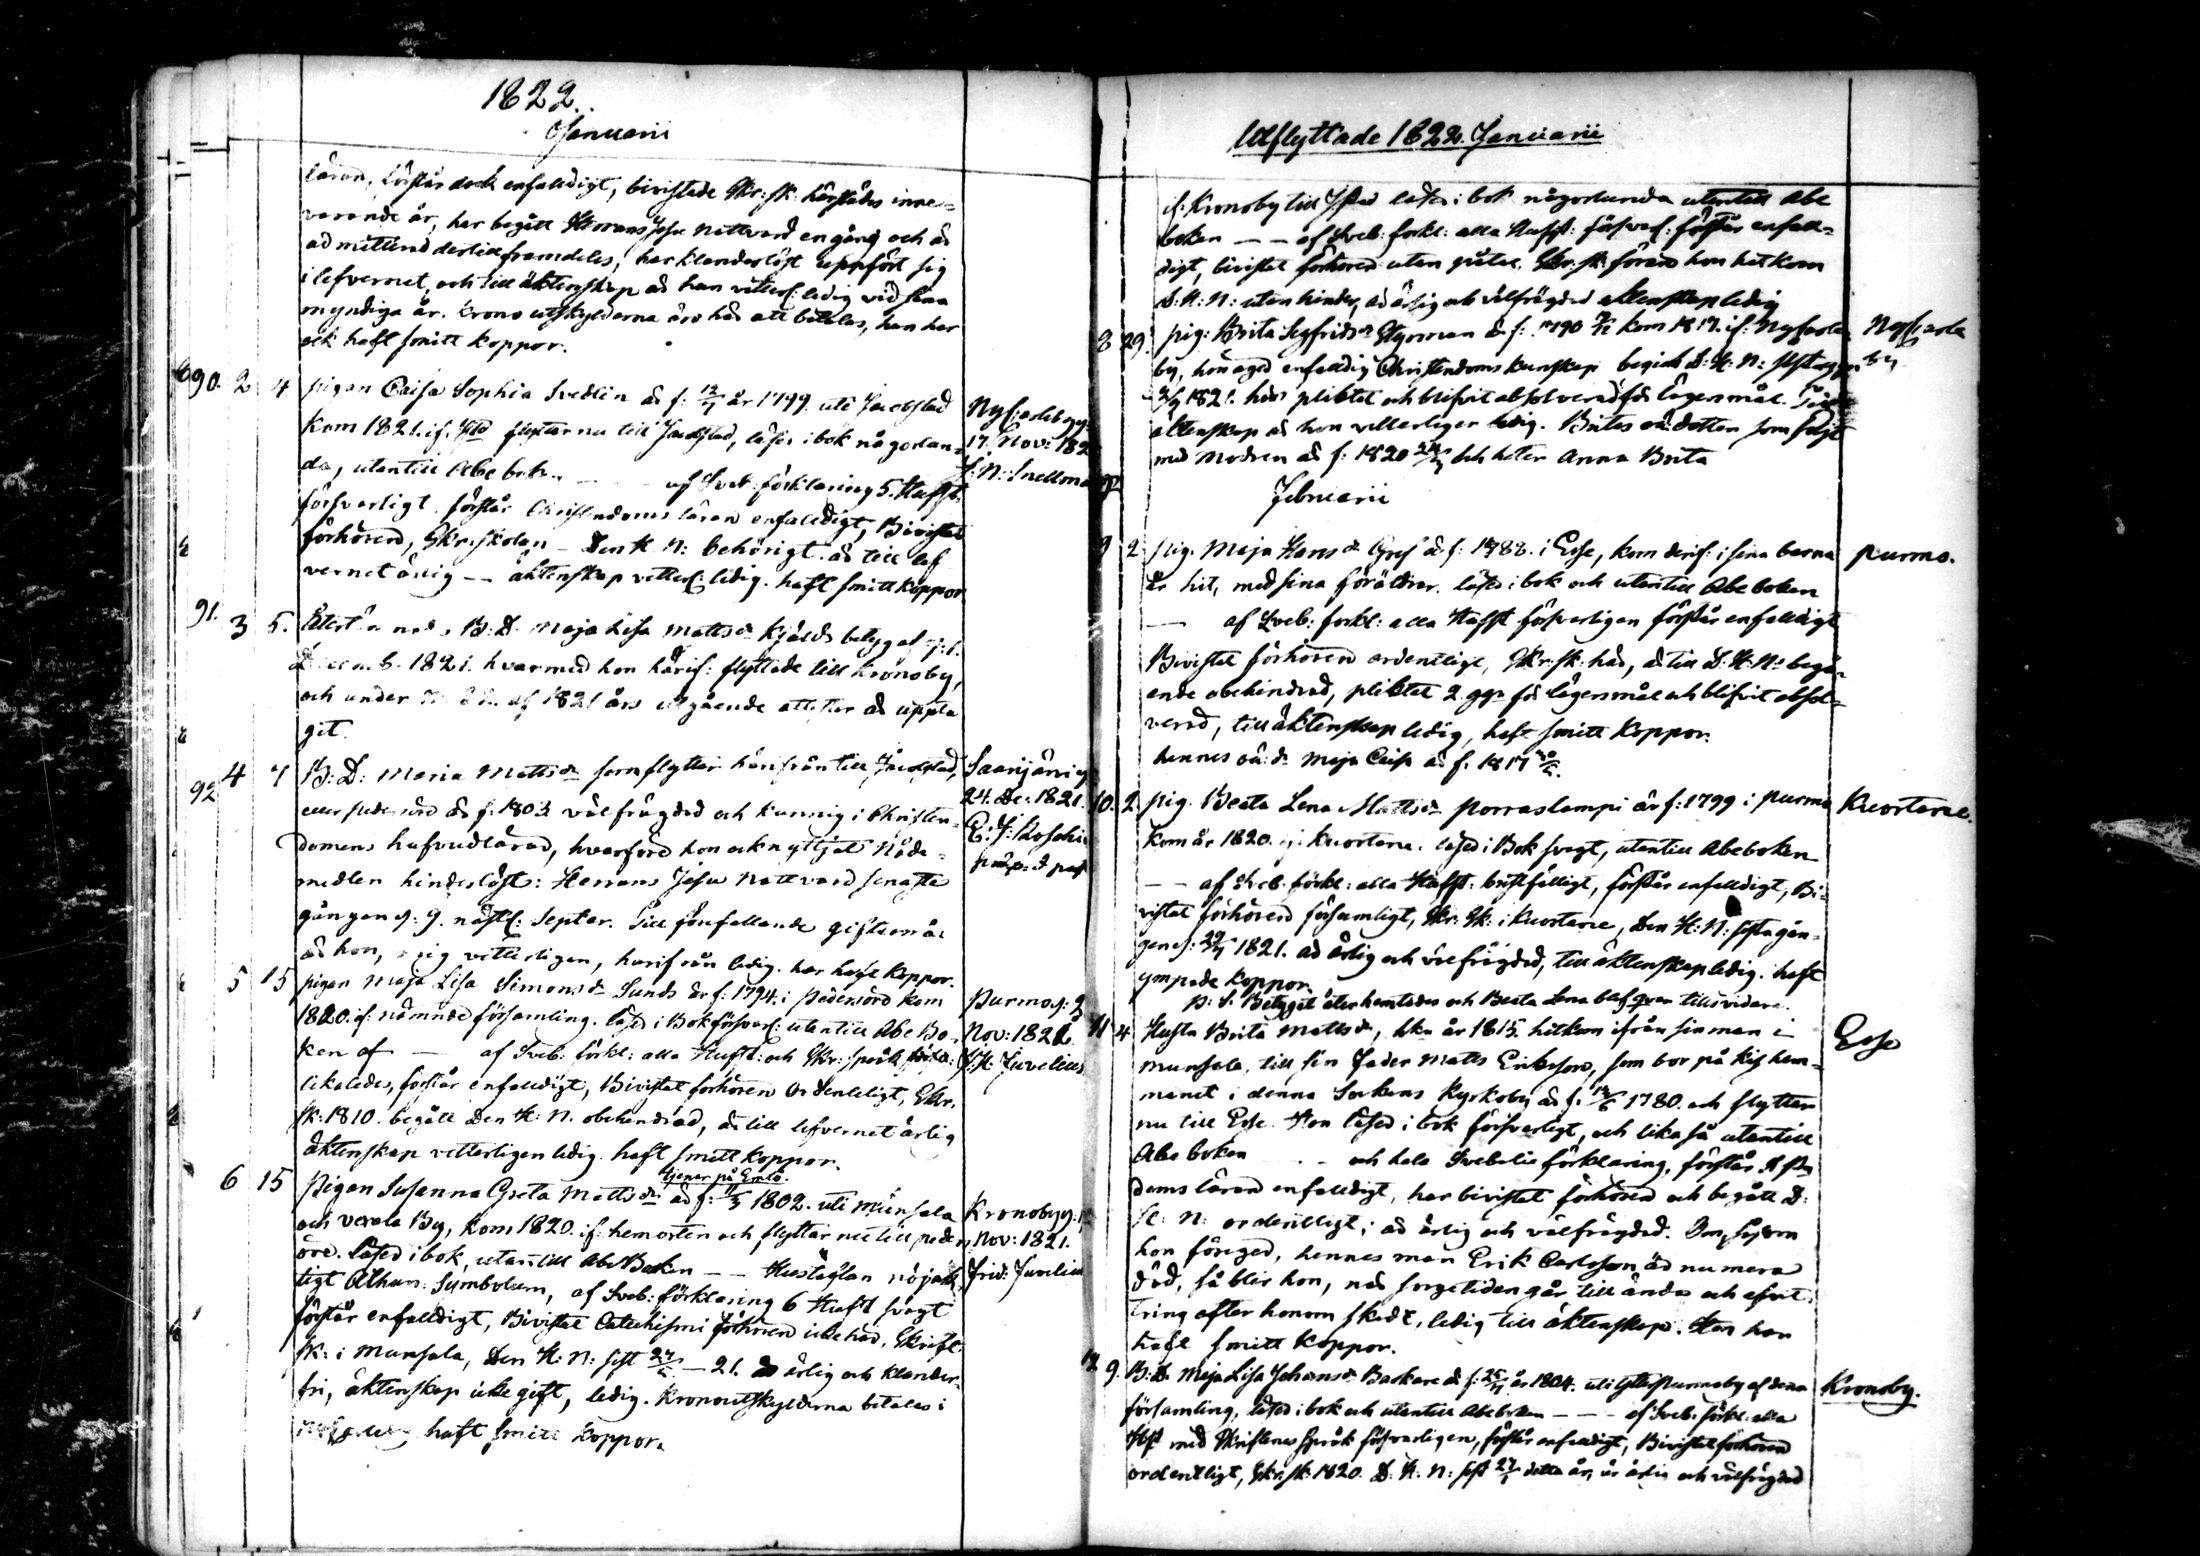 1822.
Januarii
läran, förstår dock enfaldigt, bivistade Skr: sk: härstädes inne-
varande år, har begått Herrans Jesu Nattvard en gång och är
admitterad dertill framdeles, har klanderlöst uppfört sig
i lefvernet, och till äktenskap är han vitterl: ledig vid sina
myndiga år. Krono utskylderna äro här att betalas, han har
ock haft smitt koppor.
690. 2 4 pigan Caisa Sophia Svedlin är f: 12/7 år 1799 uti Jacobstad
kom 1821. if: Jstd flyttar nu till Jacobstad, läser i bok någorlun-
da, utantill Abc boken - - af Sveb: förklaring 5. Hufst:
försvarligt. förstår Christendoms läran enfaldigt, Bivistat
förhören, Skr: skolan - Den H. N: behörigt. är till lef
vernet ärlig - - äktenskap vitterl: ledig. haft smitt koppor
Nycarleby
17. Nov: 182
J: N: Snellma
91. 3 5. B: D. Maja Lisa Matts dr kjälds betyg af
Decemb. 1821. hvarmed hon härif: flyttade till Kronoby,
och under N: af 1821 års utgående attester är uppta
git.
92 4 7 B: D: Maria Matts dr som flyttar härifrån till Jacobstad,
eller Pedersöre är f: 1803 välfrägdad och kunnig i Christen-
domens hufvudläror, hvarföre hon ock nyttjat Nåde-
medlen hinderlöst: Herrans Jesu Nattvard senaste
gången d: 9. nästl: Septer. Till förefallande giftermål
är hon, mig vitterligen, härifrån ledig. har haft koppor.
Saarijärvi
24. De: 1821.
5 15 pigan Maja Lisa Simons dr Sunds är f: 1794. i Pedersöre kom
1820. if: nämnde församling. läser i Bok försvarl: utantill Abc Bo-
ken af - af Sveb: förkl: alla Hufst: och Skr: språk
likaledes, förstår enfaldigt, Bivistat förhören Ordenteligt, Skr.
sk: 1810. begått Den H: N. obehindrad, är till lefvernet ärlig
äktenskap vitterligen ledig. haft smitt koppor.
Purmo d: 3
Nov: 1821
H: Juvelius
6 15 tjenar på Emlo.
Pigan Susanna Greta Matts dr är f: 1802. uti Munsala
och Vexala By, kom 1820. if: hemorten och flyttar nu till peders
öre. Läser i bok, utantill Abc Boken - - Hustaflan nöjakt
ligt Athan: Symbolum, af Sveb: förklaring 6 Hufst svagt
förstår enfaldigt, Bivistat Catechismi förhören icke här, Skrift
sk: i Munsala, Den H: N: sist - 21. är ärlig och klander-
fri, äktenskap icke gift, ledig. Kronoutskylderna betalas i
haft smitt koppor.
Kronoby d: 1
Nov: 1821.
Frid: Juvelius
Utflyttade 1822. Januarii
if: Kronoby till Jstad läser i bok någorlunda utantill Abc
boken - - af Sveb: forkl: alla Hufst: försvarl: förstår enfal-
digt, bivistat förhören utan Skr: sk: förrän hon hitkom
D: H: N: utan hinder, är ärlig och välfrägdad äktenskap ledig
8 29. pig: Brita Sigfrids dr Styrman är f: 1790 kom 1817. if: Nycarle
by, hon äger enfaldig Christendoms kunskap begick D: H: N: sist
1821. här pliktat och blifvit absolverad för Lägersmål. Till
äktenskap är hon vitterligen ledig. Britas oä dotter som följt
med modren är f: 1820 och heter Anna Brita
Nycarle
by
Februarii
9 2 Pig. Maja Hans dr Gref är f: 1788. i Esse, kom derif: i sina barna
år hit, med sina föräldrar. läser i bok och utantill Abc boken
- af Sveb: forkl: alla Hufst försvarligen förstår enfaldigt
Bivistat förhören ordentligt, Skr: sk: här, är till D: H: N: begå-
ende obehindrad, pliktat 2 ggr för lägersmål och blifvit absol-
verad, till äktenskap ledig, haft smitt koppor.
hennes oä: d: Maja Caisa är f. 1817
purmo.
10. 2. pig. Beata Lena Matts dr Porraslampi är f: 1799 i Purmo
kom år 1820. if: Kuortane. läser i Bok svagt, utantill Abc boken
- - af Sveb: förkl: alla Hufst: bristfälligt, förstår enfaldigt, Bi-
vistat förhören försumligt, Skr: Sk: i Kuortane, Den H: N: sista gån-
gen d: 1821. är ärlig och välfrägdad, till äktenskap ledig. haft
ympade koppor.
P: S. Betyget återhemtades och Beata Lena blef qvar tillsvidare.
Kuortane.
11 4 Hustr Brita Matts dr, hka år 1815. hitkom ifrån sin man i
Munsala, till sin Fader Matts Eriksson, som bor på hem-
manet i denna Sockens Kyrkoby är f: 1780. och flyttar
nu till Esse. Hon läser i bok försvarligt, och likaså utantill
Abc boken - - och hela Svebelii förklaring, förstår
doms läran enfaldigt, har bivistat förhören och begått D:
H: N: ordentligt; är ärlig och välfrägdad. Om, såsom
hon föregaf, hennes man Erik Carlsson är numera
död, så blir hon, när sorgetiden går till ända och afvit-
tring efter honom skedt, ledig till äktenskap. Hon har
haft smitt koppor.
Esse
12 9. B: D. Maja Lisa Johans dr Backare är f: år 1804. uti Ytterpurmoby af denna
församling, läser i bok och utantill Abc boken - - - af Sveb: förkl: alla
Hst med Skriftenes Språk försvarligen, förstår enfaldigt, Bivistat förhören
ordentligt, Skr: sk: 1820. D: H: N: sist detta år, är ärlig och välfrägdad
Kronoby.